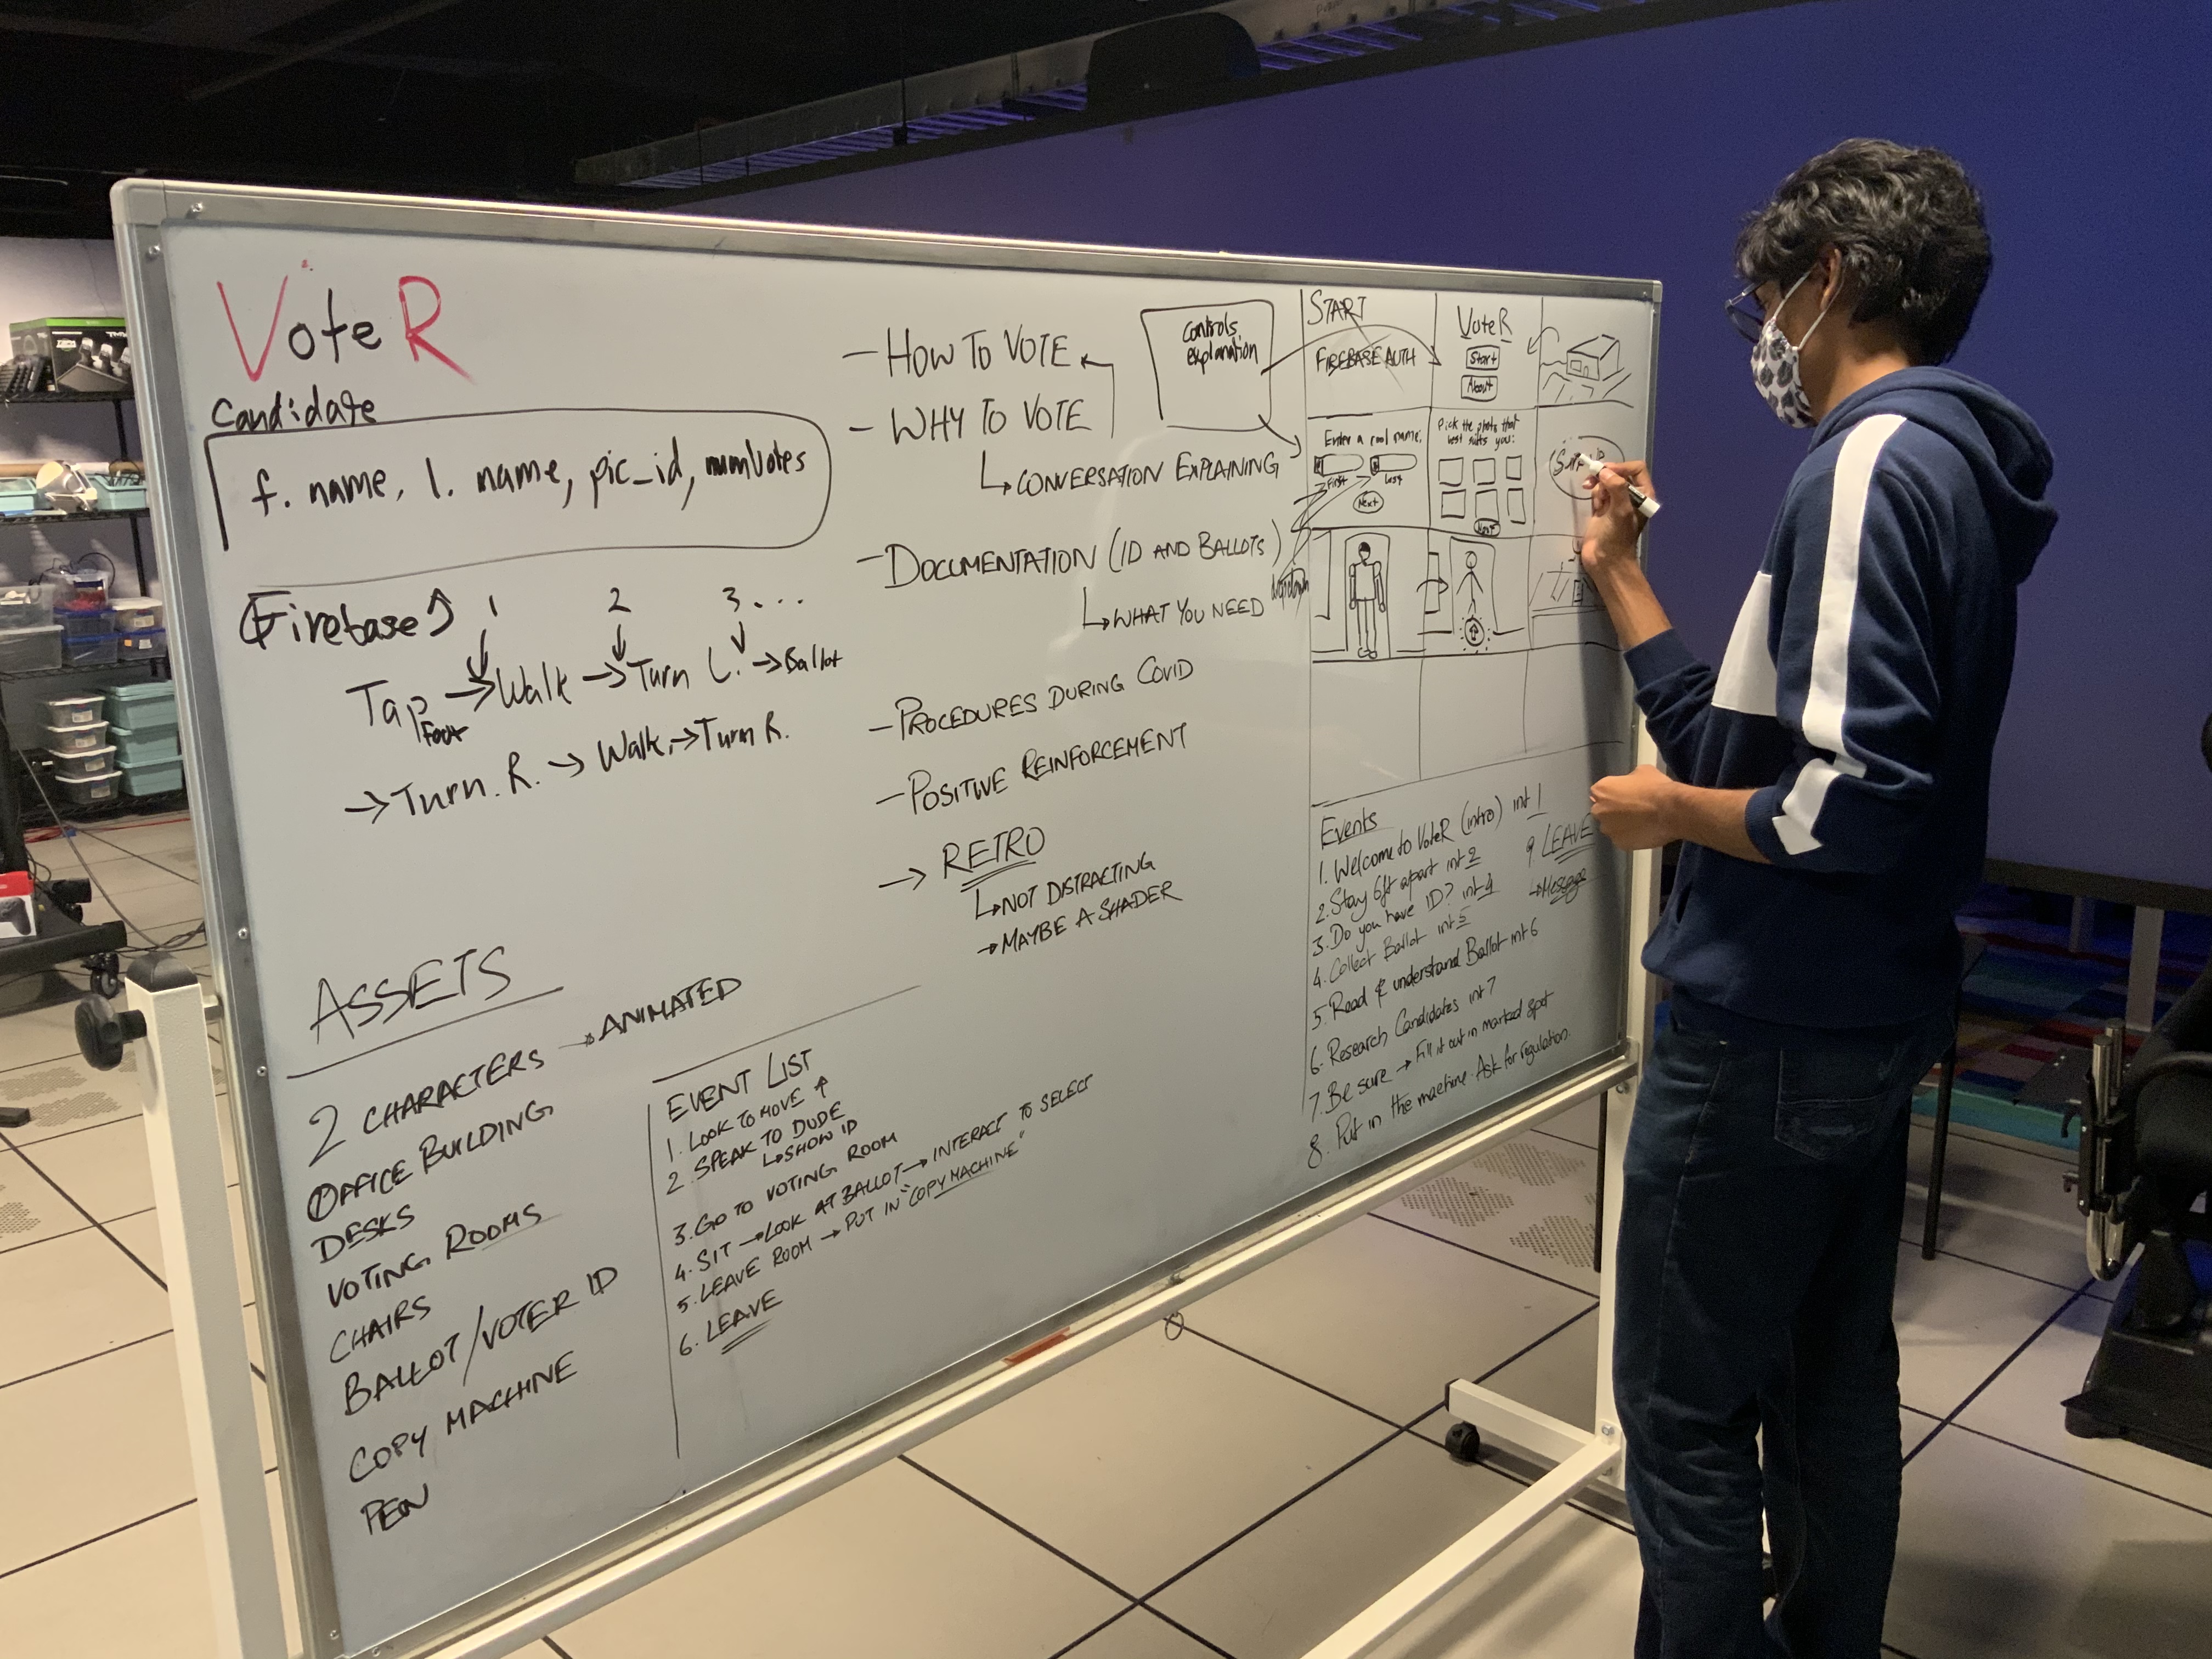 VoteR
Candidate
f. name, l. name, pic_id, numVotes
(Firebase)
1 2 3...
Tap → Walk → Turn L. → Ballot
Foot
→ Turn R. → Walk → Turn R.
ASSETS
2 CHARACTERS → ANIMATED
OFFICE BUILDING
DESKS
VOTING ROOMS
CHAIRS
BALLOT/VOTER ID
COPY MACHINE
PEN
EVENT LIST
1. LOOK TO MOVE ↑
2. SPEAK TO DUDE
↳ SHOW ID
3. GO TO VOTING ROOM
4. SIT → LOOK AT BALLOT → INTERACT TO SELECT
5. LEAVE ROOM → PUT IN "COPY MACHINE"
6. LEAVE
- HOW TO VOTE
- WHY TO VOTE
↳ CONVERSATION EXPLAINING
- DOCUMENTATION (ID AND BALLOTS)
↳ WHAT YOU NEED
- PROCEDURES DURING COVID
- POSITIVE REINFORCEMENT
→ RETRO
↳ NOT DISTRACTING
→ MAYBE A SHADER
controls
explanation
START
FIREBASE AUTH
VoteR
Start
About
Enter a cool name:
First Last
Next
dropdown
Pick the photo that
best suits you:
Next
Events
1. Welcome to VoteR (intro) int 1
2. Stay 6ft apart int 2
3. Do you have ID? int 4
4. Collect Ballot int 5
5. Read & understand Ballot int 6
6. Research Candidates int 7
7. Be sure → Fill it out in marked spot
8. Put in the machine. Ask for regulation.
9. LEAVE
↳ Message